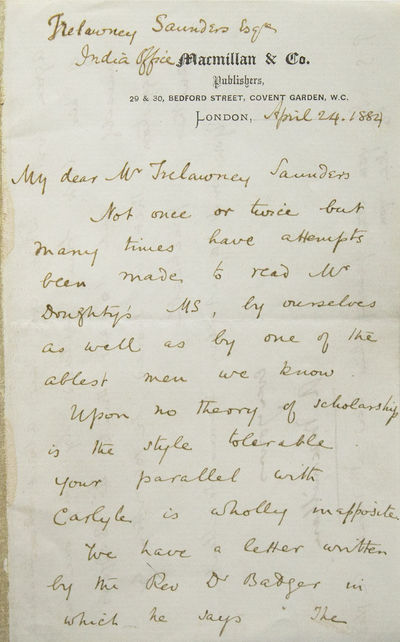 Trelawney Saunders Esqre
India Office Macmillan & Co.
Publishers,
29 & 30, BEDFORD STREET, COVENT GARDEN, W.C.
LONDON, April 24. 1884
My dear Mr Trelawney Saunders
Not once or twice but
many times have attempts
been made to read Mr
Doughty's MS, by ourselves
as well as by one of the
ablest men we know.
Upon no theory of scholarship
is the style tolerable.
Your parallel with
Carlyle is wholly inapposite.
We have a letter written
by the Rev Dr Badger in
which he says "The